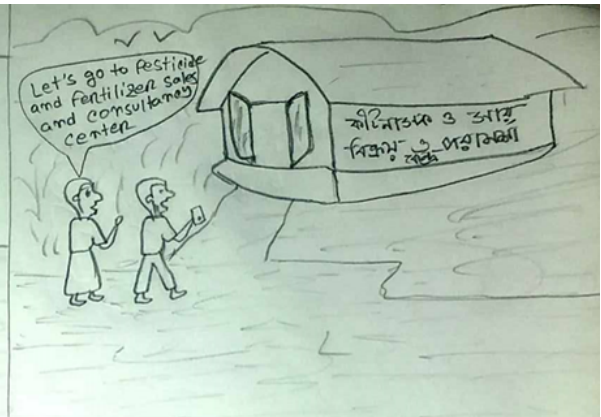 Let's go to Pesticide
and fertilizer sales
and consultancy
center
কীটনাশক ও সার
বিক্রয় ও পরামর্শ
কেন্দ্র